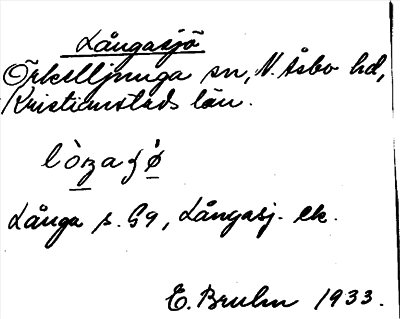 Långasjö
Örkelljunga sn, N. Åsbo hd,
Kristianstads län.
Långa s. 59, Långasj. ek.
E. Bruhn 1933.